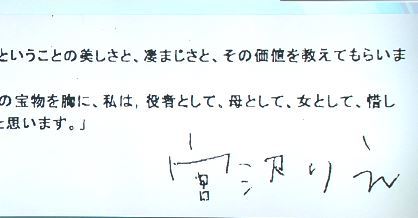 ということの美しさと、凄まじさと、その価値を教えてもらいま
の宝物を胸に、私は，役者として、母として、女として、惜し
と思います。」
宮沢りえ